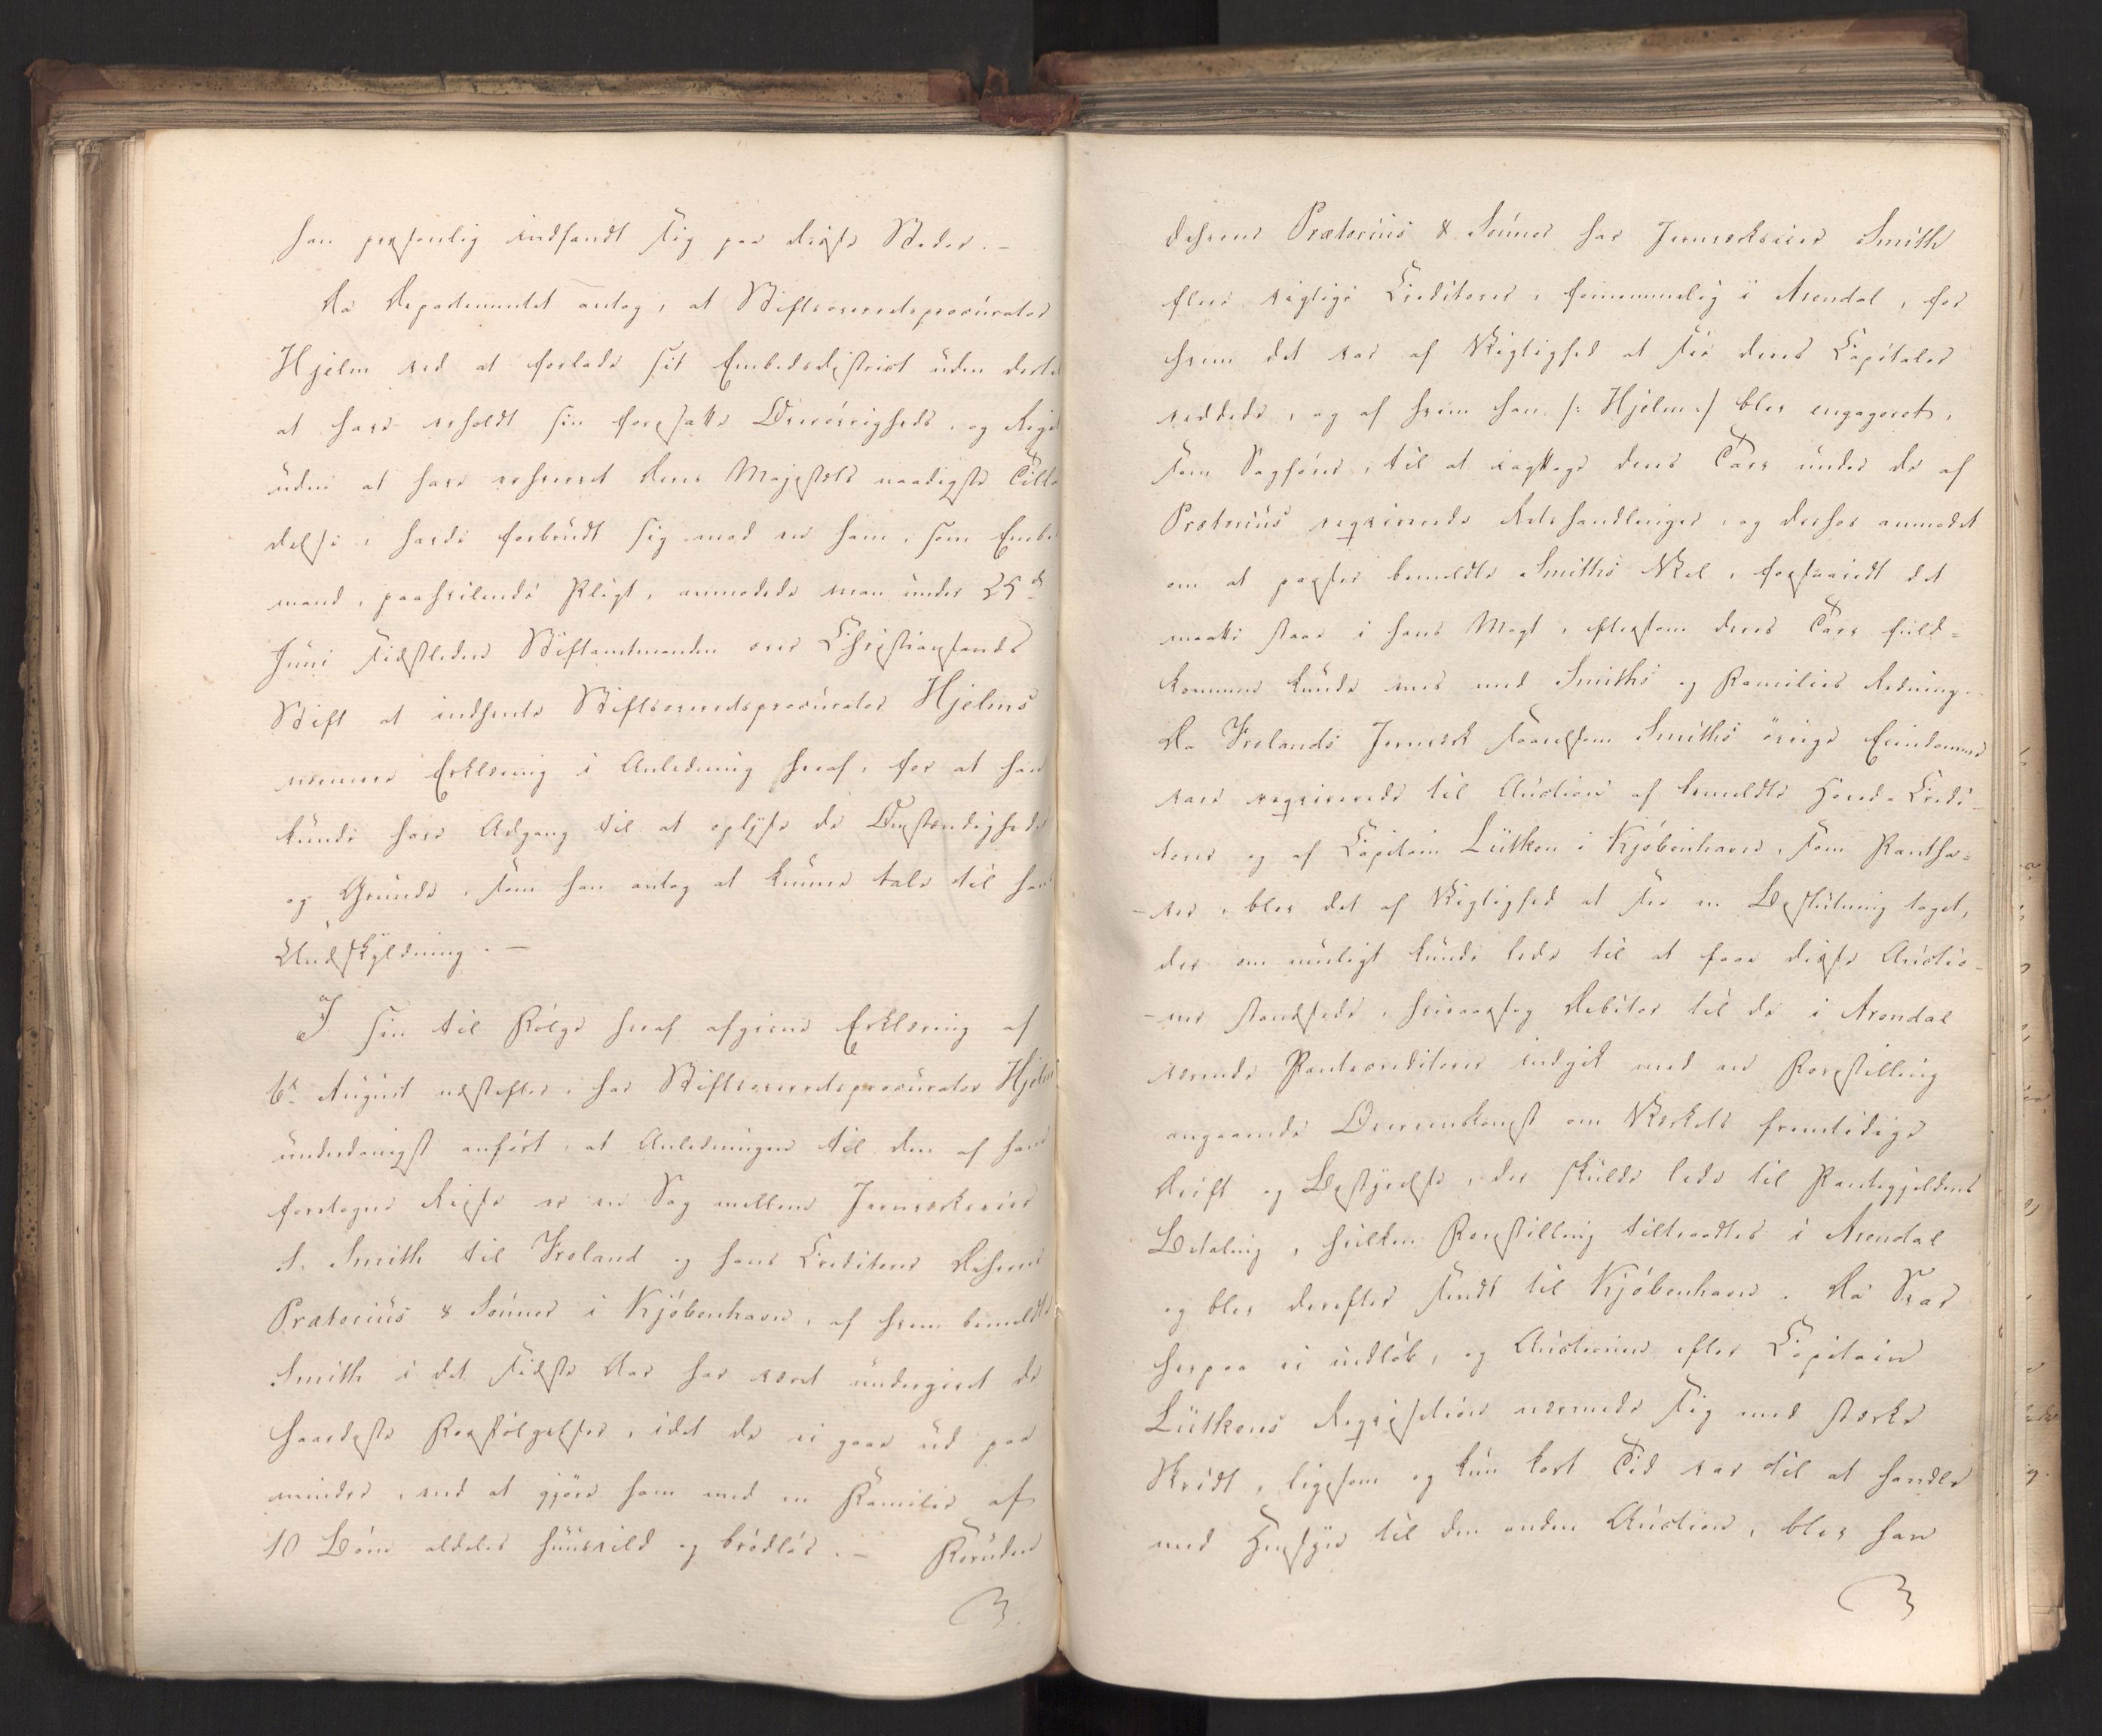 han personlig indfandt sig paa disse Steder. —
Da Departementet antog, at Stiftsoverretsprocurator
Hjelm ved at forlade sit Embedsdistrict uden dertil
at have erholdt sin foresatte Øvrigheds, og Riget
uden at have erhvervet Deres Majestæts naadigste Tilla
delse, havde forbrudt sig mod en ham, som Embeds
mand, paahvilende Pligt, anmodede man under 25de
Juni sidstleden Stiftamtmanden over Christiansands
Stift at indhente Stiftsoverretsprocurator Hjelms
nærmere Erklæring i Anledning heraf, for at han
kunde have Adgang til at oplyse de Omstændigheder
og Grunde, som han antog at kunne tale til hans
Undskyldning. —
I sin til Følge heraf afgivne Erklæring af
6te August næstefter, har Stiftsoverretsprocurator Hjelm
underdanigst anført, at Anledningen til den af ham
foretagne Reise er en Sag mellem Jernværkseier
S. Smith til Froland og hans Creditorer DHerrer
Prætorius & Sønner i Kjøbenhavn, af hvem bemeldte
Smith i det sidste Aar har været undergivet de
haardeste Forfølgelser, idet de ei gaae ud paa
mindre, end at gjøre ham med en Familie af
10 Børn aldeles huusvild og brødløs. — Foruden
DHerrer Prætorius & Sønner har Jernværkseier Smith
flere vigtige Creditorer, fornemmelig i Arendal, for
hvem det var af Vigtighed at see deres Capitaler
reddede, og af hvem han /: Hjelm :/ blev engageret,
som Sagfører, til at iagttage deres Tarv under de af
Prætorius reqvirerede Retshandlinger, og derhos anmodet
om at passe bemeldte Smiths Vel, forsaavidt det
maatte staae i hans Magt, eftersom deres Tarv fuld=
kommen kunde enes med Smiths og Families Redning.
Da Frolands Jernværk saavelsom Smiths øvrige Eiendomme
vare reqvirerede til Auction af bemeldte Hoved-Credi-
torer og af Capitain Lütken i Kjøbenhavn, som Pantha=
-ver, blev det af Vigtighed at see en Beslutning taget,
der om muligt kunde lede til at faae disse Auctio-
-ner standsede, hvisaarsag Debitor til de i Arendal
værende Pantecreditorer indgik med en Forestilling
angaaende Overenskomst om Værkets fremtidige
Drift og Bestyrelse, der skulde lede til Pantegjeldens
Betaling, hvilken Forestilling tiltraadtes i Arendal
og blev derefter sendt til Kjøbenhavn. Da Svar
herpaa ei indløb, og Auctionen efter Capitain
Lütkens Reqvisition nærmede sig med stærke
Skridt, ligesom og kun kort Tid var til at handle
med Hensyn til den anden Auction, blev han